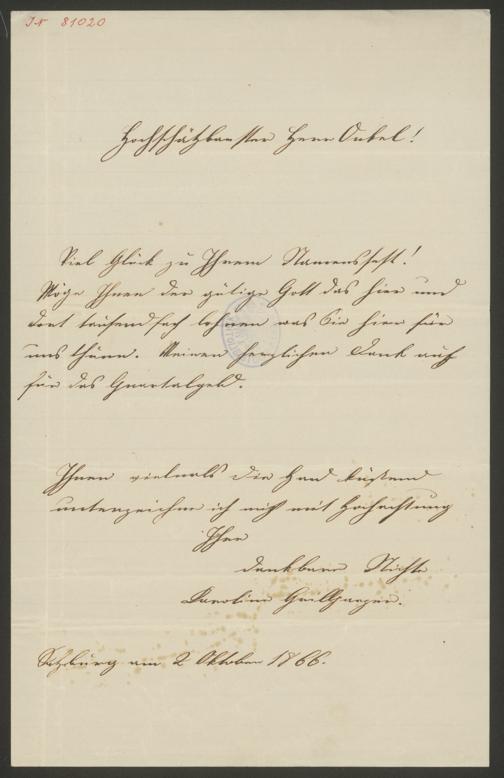 IN 81020
Hochschätzbarster Herr Onkel!
Viel Glück zu Ihrem Namensfest!
Möge Ihnen der gütige Gott das hier und
dort tausendfach lohnen was Sie hier für
uns thuen. Meinen herzlichen Dank auch
für das Quartalgeld.
Ihnen vielmals die Hand küssend
unterzeichne ich mich mit Hochachtung
Ihre
dankbare Nichte
Caroline Grillparzer.
Salzburg am 2 Oktober 1866.